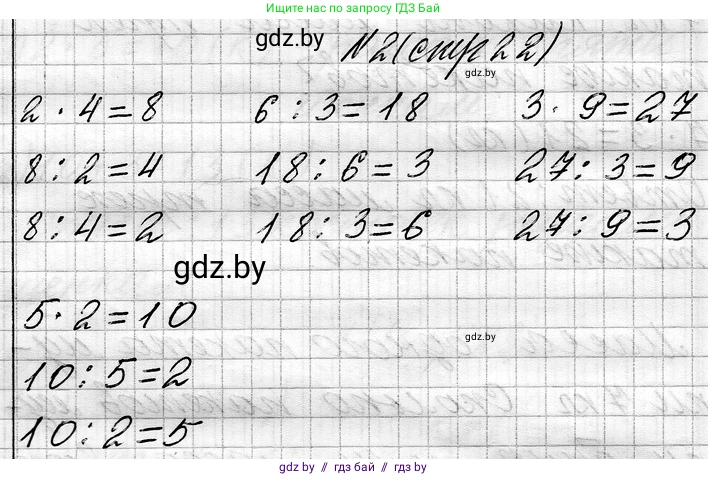 Ищите нас по запросу ГДЗ Бай
gdz.by
N2(стр22)
gdz.by
2 · 4 = 8 6 : 3 = 18 3 · 9 = 27
8 : 2 = 4 18 : 6 = 3 27 : 3 = 9
8 : 4 = 2 18 : 3 = 6 27 : 9 = 3
gdz.by
5 · 2 = 10
gdz.by
10 : 5 = 2
10 : 2 = 5
gdz.by // гдз бай // gdz.by